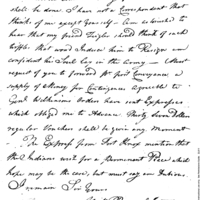 shall be done. I have not a Correspondent that
thinks of me except yourself I am astonished to
hear that my friend Taylor should think of such
that wou'd Induce him to Resign am
confident his Soul lay in the Army — Must
request of you to forward Pr first Conveyance a
supply of Money for Contingencies agreeable to
Genl Wilkinsons Orders have sent Expresses
which obliged me to Advance Thirty Dollars
regular Vouchers shall be given any Moment
The Express from Fort Knox mention that
the Indians wish for a Permanent Peace which
hope may be the case, but must say an Indian.
I remain Sir Yours